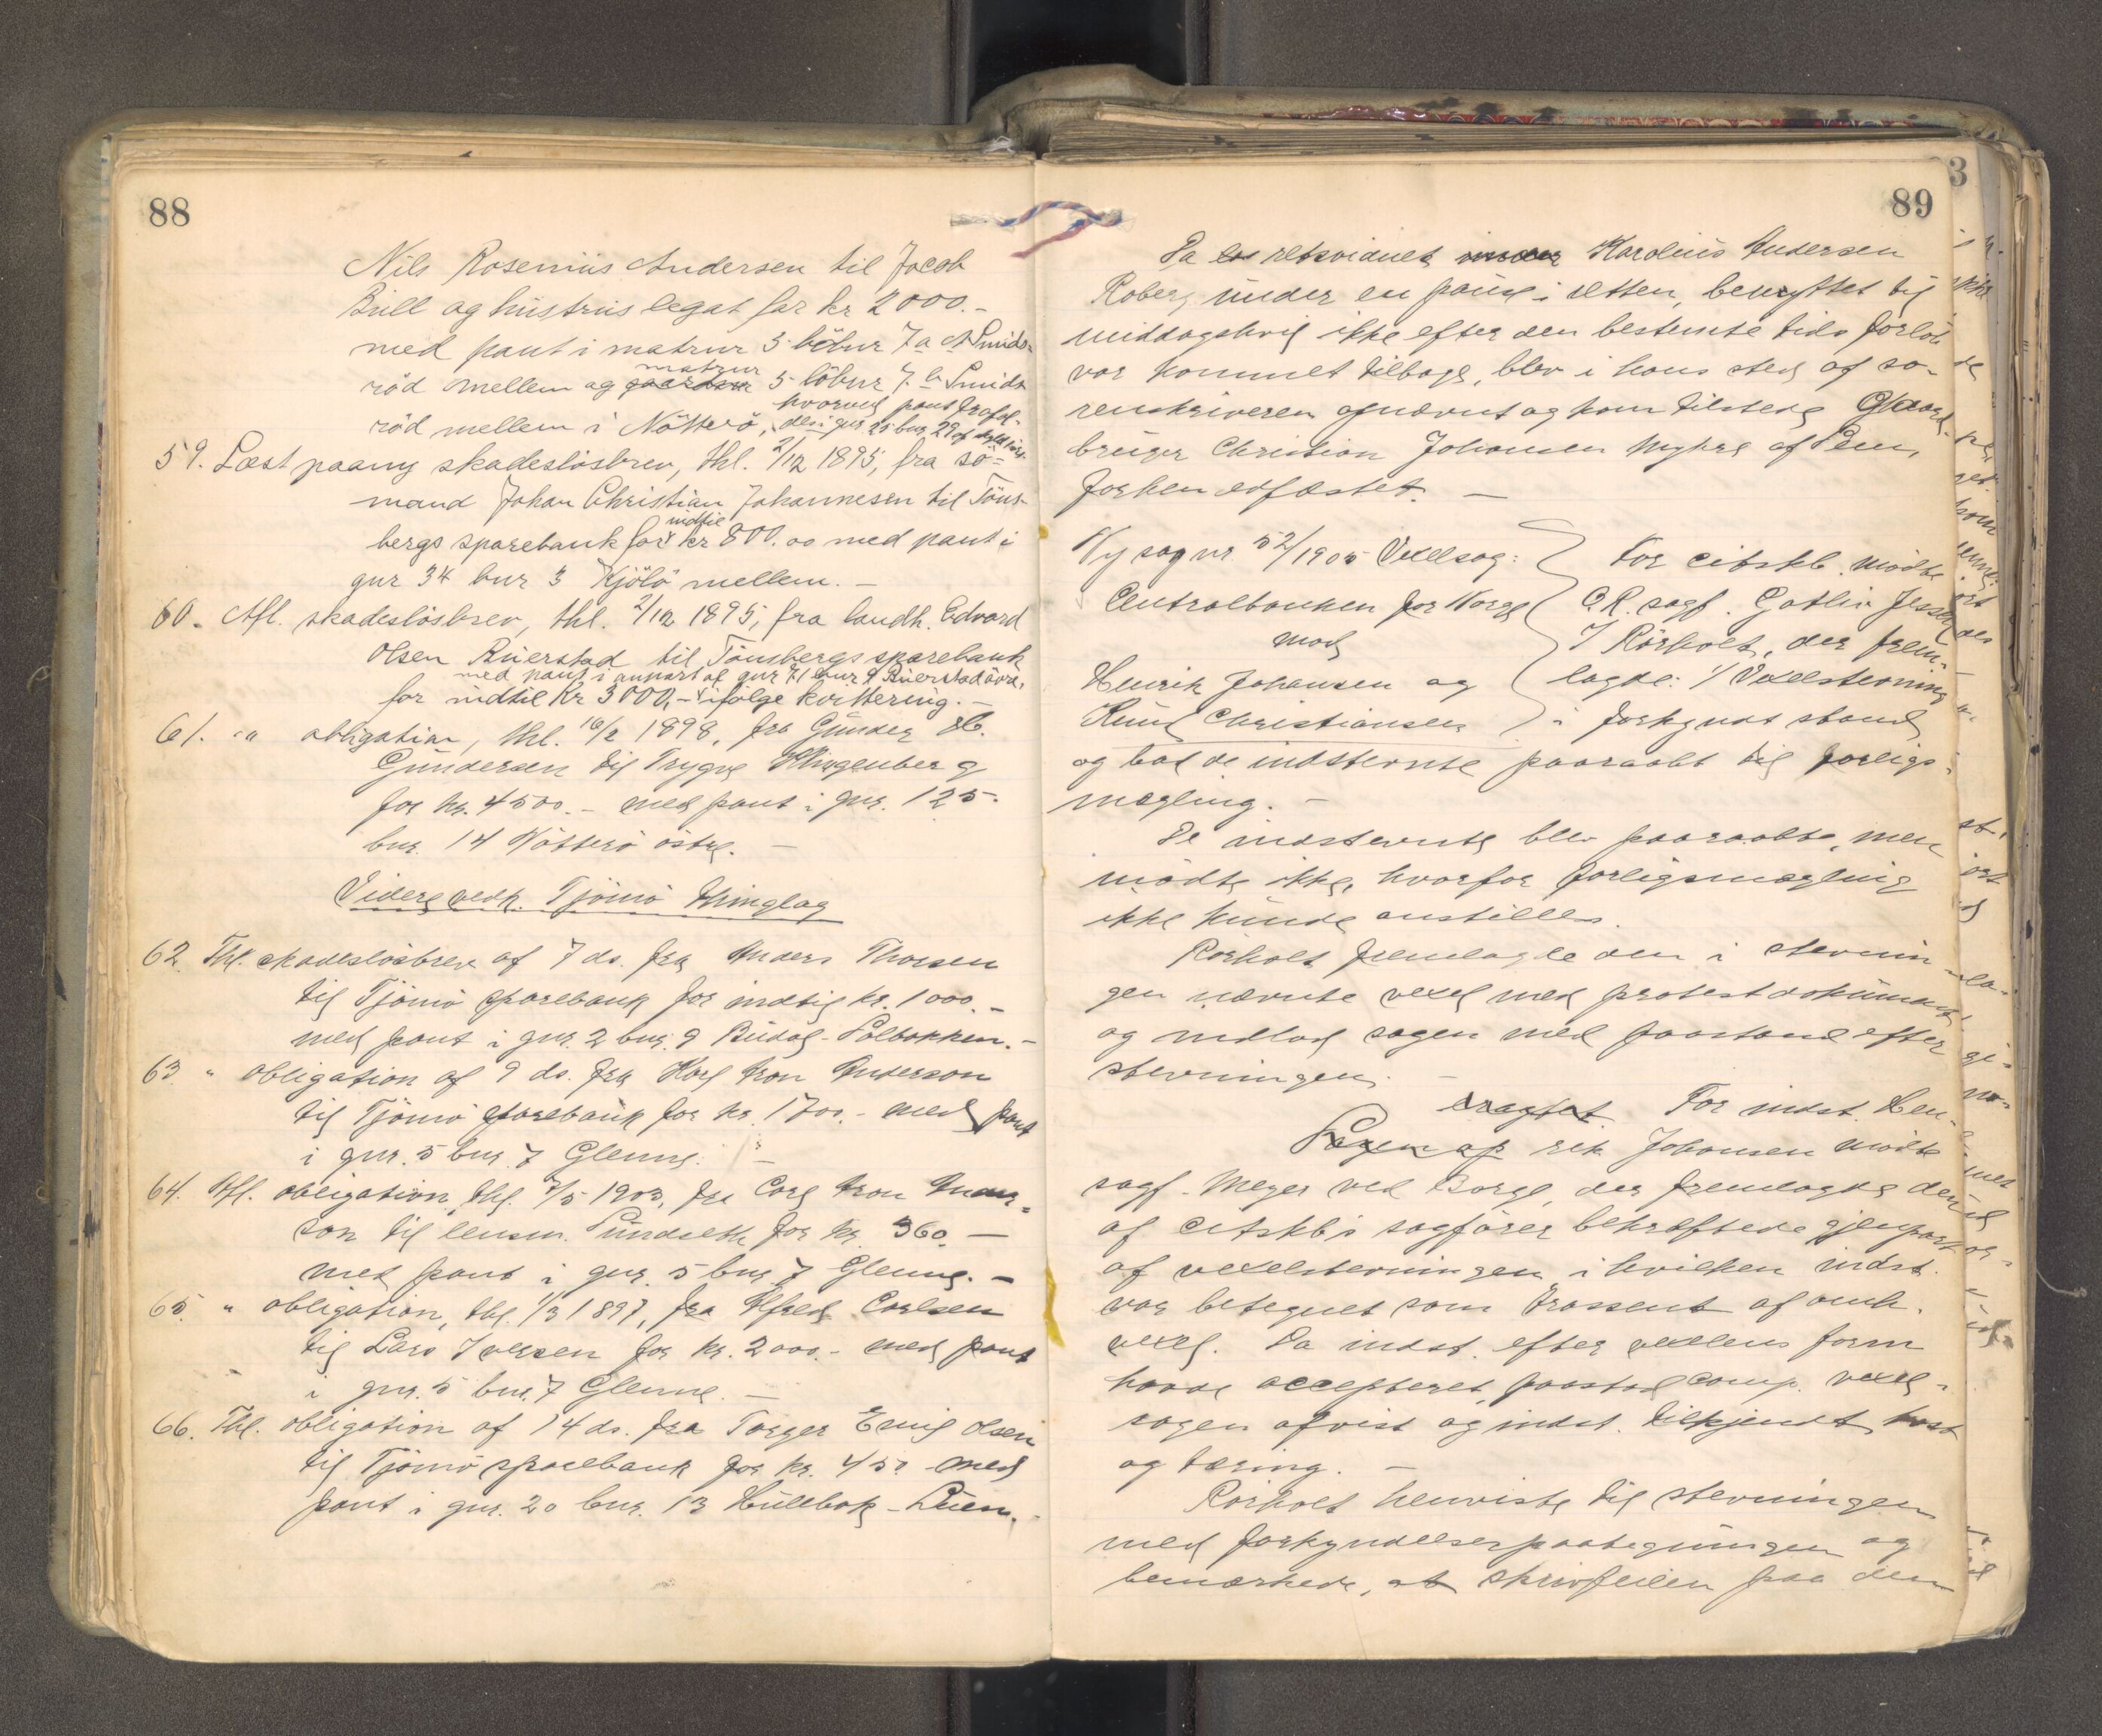 88
Nils Rosenius Andersen til Jacob
Bull og hustrus legat for kr 2000.-
med pant i matrnr 5 löbnr 7a Smids-
matrnr
röd mellem og gaardsnr 5 löbnr 7 b Smids
hvorved pantefrafal-
röd mellem i Nötterö, des: gnr 25 bnr 29 af
59. Læst paany skadeslösbrev, thl. 2/12 1895, fra sö-
mand Johan Christian Johannesen til Töns-
indtil
bergs sparebank for kr 800.00 med pant i
gnr 34 bnr 3 Kjölö mellem. —
60. Afl. skadeslösbrev, thl. 2/12 1895, fra landh. Edvard
Olsen Buerstad til Tönsbergs sparebank
med pant i anpart af gnr 71 bnr 9 Buerstad övre,
for indtil Kr 3000,- ifölge kvittering. —
61. " obligation, thl. 16/2 1898, fra Gunder
Gundersen til Trygve Klingenberg
for kr. 4500.- med pant i gnr. 125.
bnr. 14 Nötterö östre. —
Videre vedk. Tjömö thinglag
62. Thl. skadeslösbrev af 7 ds. fra Anders Thorsen
til Tjömö sparebank for indtil kr. 1000.-
med pant i gnr. 2 bnr. 9 Budal-Solbakken. -
63 " obligation af 9 ds. fra Karl Aron Anderson
til Tjömö sparebank for kr. 1700.- med pant
i gnr. 5 bnr. 7 Glenne. —
64. Afl. obligation, thl. 7/5 1903, fra Carl Aron Ander=
son til lensm. Sundseth for kr. 360. —
med pant i gnr. 5 bnr. 7 Glenne. -
65. " obligation, thl. 1/3 1897, fra Alfred Carlsen
til Lars Iversen for kr. 2000.- med pant
i gnr. 5 bnr. 7 Glenne. —
66. Thl. obligation af 14 ds. fra Torger Emil Olsen
til Tjömö sparebank for kr. 450 med
pant i gnr. 20 bnr. 13 Hulbak - Luen. -
89
Da retsvidnet Karolius Andersen
Roberg under en pause i retten, benyttet til
middagshvil ikke efter den bestemte tids forlöb
var kommet tilbage, blev i hans sted af so-
renskriveren opnævnt og kom tilstede Gaard-
bruger Christian Johansen Nyhre af Sem,
forhen edfæstet. —
Ny sag nr 52/1905 Vexelsag:
Centralbanken for Norge
mod
Henrik Johansen og
Knud Christiansen
For citskb. mödte
O.R. sagf. Gotlin Jessen
I Rörholt, der frem-
lagde: 1/ Vexelstevning
i forkyndt stand
og bad de indstevnte paaraabt til forligs-
mægling. —
De indstevnte blev paaraabte, men
mödte ikke, hvorfor forligsmægling
ikke kunde anstilles.
Rörholt fremlagde den i stevnin-
gen nævnte vexel med protestdokument
og indlod sagen med paastand efter
stevningen. —
eragtet. For indst. Hen-
Sagen op rik Johansen mödte
sagf. Meyer ved Borge, der fremlagde den
af citskbs sagförer bekræftede gjenpart
af vexelstevningen, i hvilken indst.
var betegnet som trassent af omh.
vexel. Da indst. efter vexelens form
havde accepteret, paastod comp. vexel-
sagen afvist og indst. tilkjendt kost
og tæring. —
Rörholt henviste til stevningen
med forkyndelsespaategningen og
bemærkede, at skrivfeilen paa den